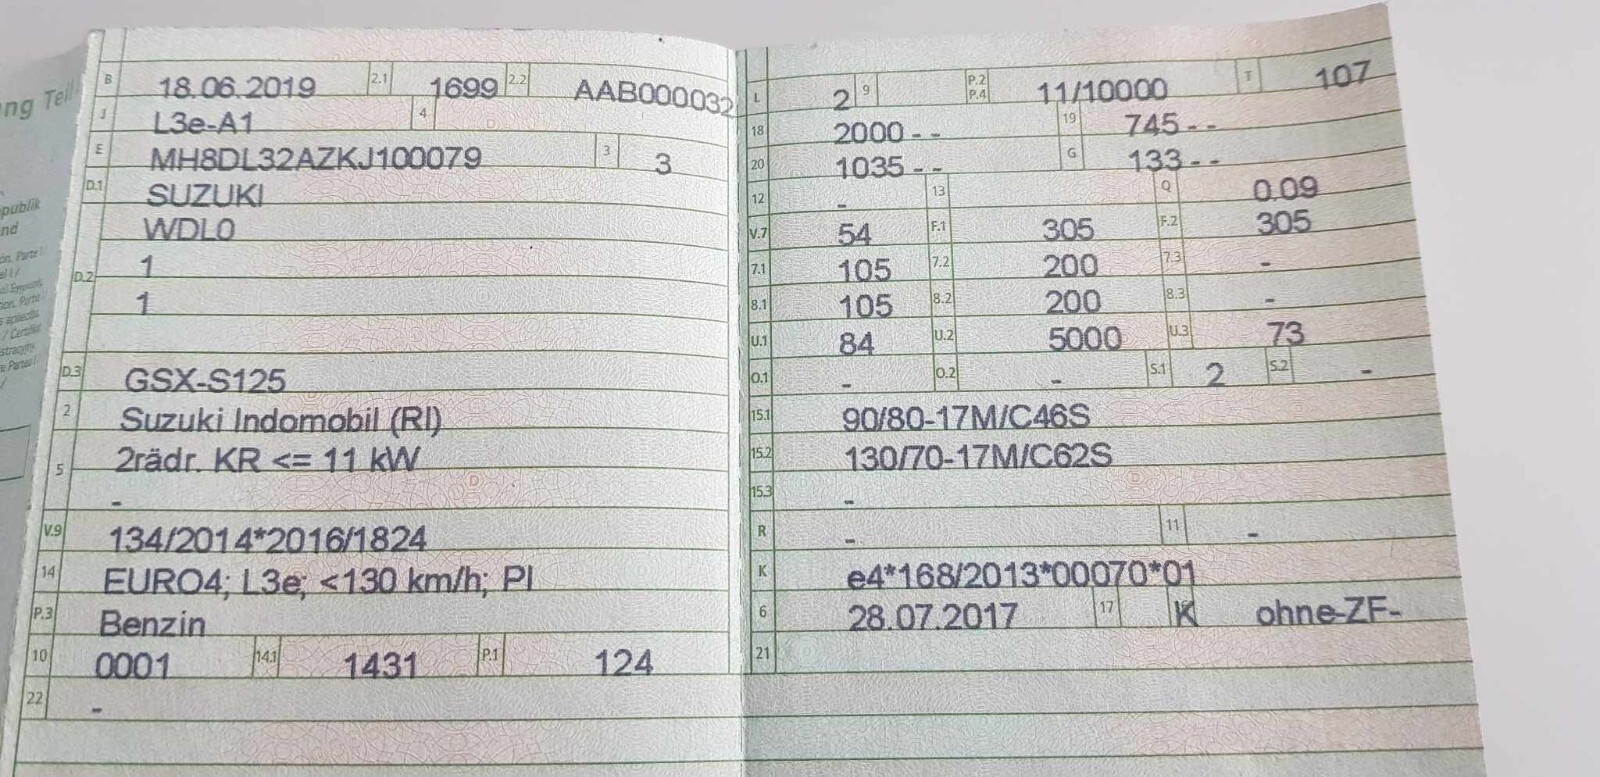 ng Teil
publik
nd
B 18.06.2019 2.1 1699 2.2 AAB000032
J L3e-A1 4
E MH8DL32AZKJ100079 3 3
D.1 SUZUKI
WDL0
D.2 1
1
D.3 GSX-S125
2 Suzuki Indomobil (RI)
5 2rädr. KR <= 11 kW
-
V.9 134/2014*2016/1824
14 EURO4; L3e; <130 km/h; PI
P.3 Benzin
10 0001 14.1 1431 P.1 124
22 -
L 2 9 P.2 P.4 11/10000 T 107
18 2000 - - 19 745 - -
20 1035 - - G 133 - -
12 - 13 Q 0.09
V.7 54 F.1 305 F.2 305
7.1 105 7.2 200 7.3 -
8.1 105 8.2 200 8.3 -
U.1 84 U.2 5000 U.3 73
O.1 - O.2 - S.1 2 S.2 -
15.1 90/80-17M/C46S
15.2 130/70-17M/C62S
15.3 -
R - 11 -
K e4*168/2013*00070*01
6 28.07.2017 17 K ohne-ZF-
21